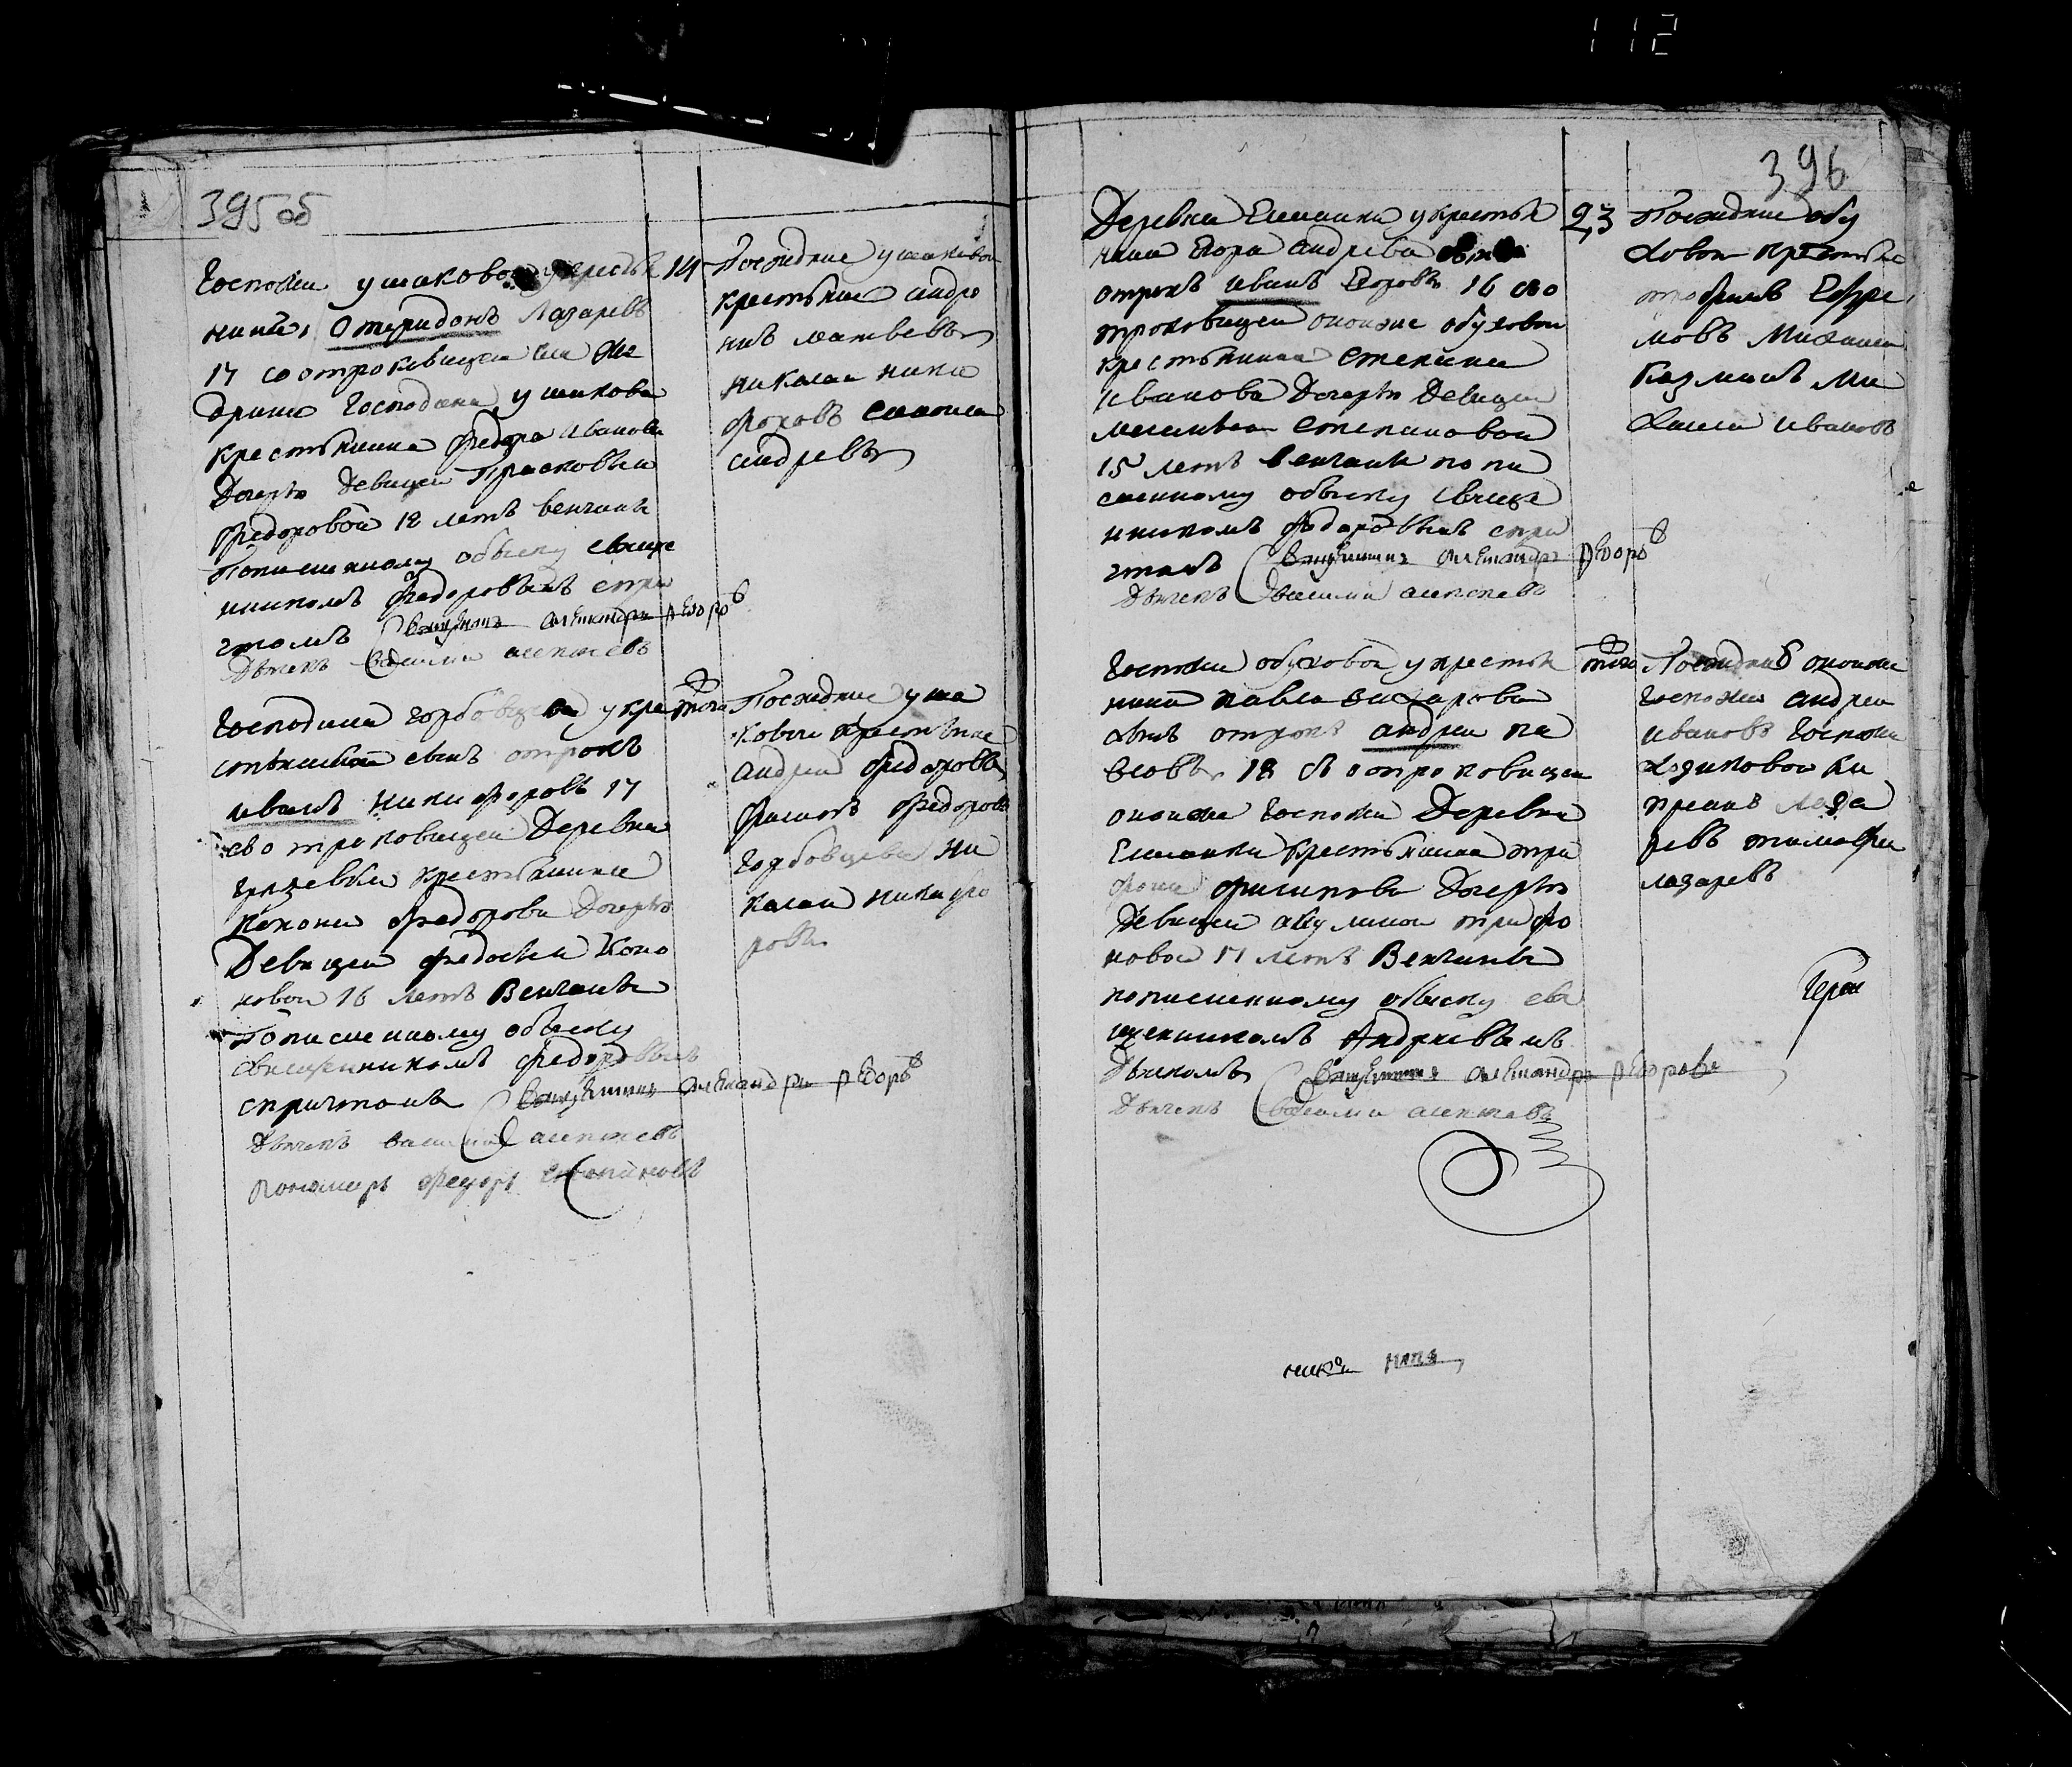 112
395 об
Госпожи ушаковой у крестья 14
нина, Спиридонъ Лазаревъ
17 со отроковицею
Господина ушакова
крестьянина Федора Иванова
Дочерью Девицей Прасковьи
Федоровой 18 летъ венчаны
По писменному обыску свяще
нникомъ Федоровымъ спри
чтомъ Священникъ Александръ Федоровъ
Дьячекъ Василий алексеевъ
Поезжане ушаковой
крестьяне андро
нъ матвевъ
николаи ники
форовъ
андревъ
Господина горбовцева у кре того
стьянина сынъ отрокъ
иванъ никифоровъ 17
со отроковицей Деревни
крестьянина
Конона Федорова Дочерью
Девицей федосьи Коно
новой 16 летъ Венчаны
По писменному обыску
священникомъ федоровымъ
спричтомъ Священникъ Александръ Федоровъ
Дьячекъ василий алексеевъ
пономарь Федоръ
Поезжане уша
ковой крестьяне
андрей федоровъ
федоровъ
Горбовцева ни
колаи никифо
ровъ
396
Деревни Еманки у крестья 23
нина Егора андрева
отрокъ иванъ Егоровъ 16 со о
троковицей оной же обуховой
крестьянина степана
иванова Дочерью Девицей
степановой
15 летъ венчаны по пи
сменному обыску свяще
нникомъ Федоровымъ спри
чтомъ Священникъ Александръ Федоровъ
Дьячекъ Василий алексеевъ
Поезжане обу
ховой крестьяне
трофимъ Ефре
мовъ Михаила
Казминъ Ми
хаила ивановъ
Госпожи обуховой у крестья того
нина павла захарова
сынъ отрокъ андреи па
вловъ 18 со отроковицей
оной же Госпожи Деревни
Еманки крестьянина три
фона филипова Дочерью
Девицей акулиной трифо
новой 17 летъ Венчаны
пописменному обыску свя
щенникомъ Андреевымъ
Дьячкомъ Священникъ Александръ Федоровъ
Дьячекъ Василий алексеевъ
Поезжане оной же
госпожи андреи
ивановъ госпожи
Ки
приянъ лаза
ревъ тимофеи
лазаревъ